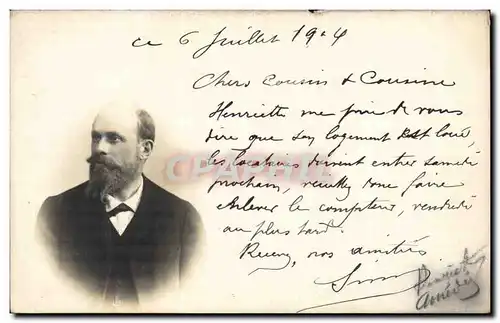 ce 6 Juillet 1904
Chers Cousin & Cousine
Henriette me prie d vous
dire que son logement est loué,
les locataires doivent entrer samedi
prochain, veuillez donc faire
enlever le compteur, vendredi
au plus tard.
Recevez, nos amitiés
CPAPHIL
Henriette
Amédée